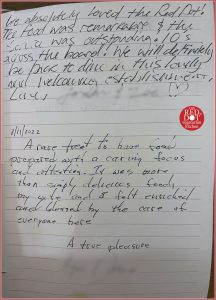 We absolutely loved the Red Dot!
The food was remarkable & the
was outstanding. 10's
across the board! We will definitely
be back to dine in this lovely
and welcoming establishment.
RED
DOT
8/11/2022
A rare treat to have food
prepared with a caring focus
and attention. It was more
than simply delicious food,
my wife and I felt enriched
and blessed by the care of
everyone here
A true pleasure